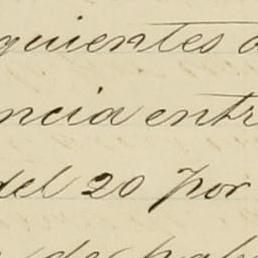 guientes
ncia entr
del 20 por
de